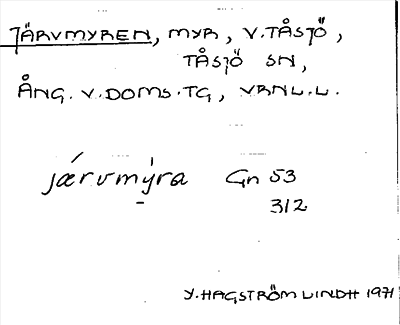 JÄRVMYREN, MYR, V.TÅSJÖ,
TÅSJÖ SN,
ÅNG. V. DOMS. TG, VRNL.L.
járvmýra Gn 53
312
Y. HAGSTRÖM LINDH 1971